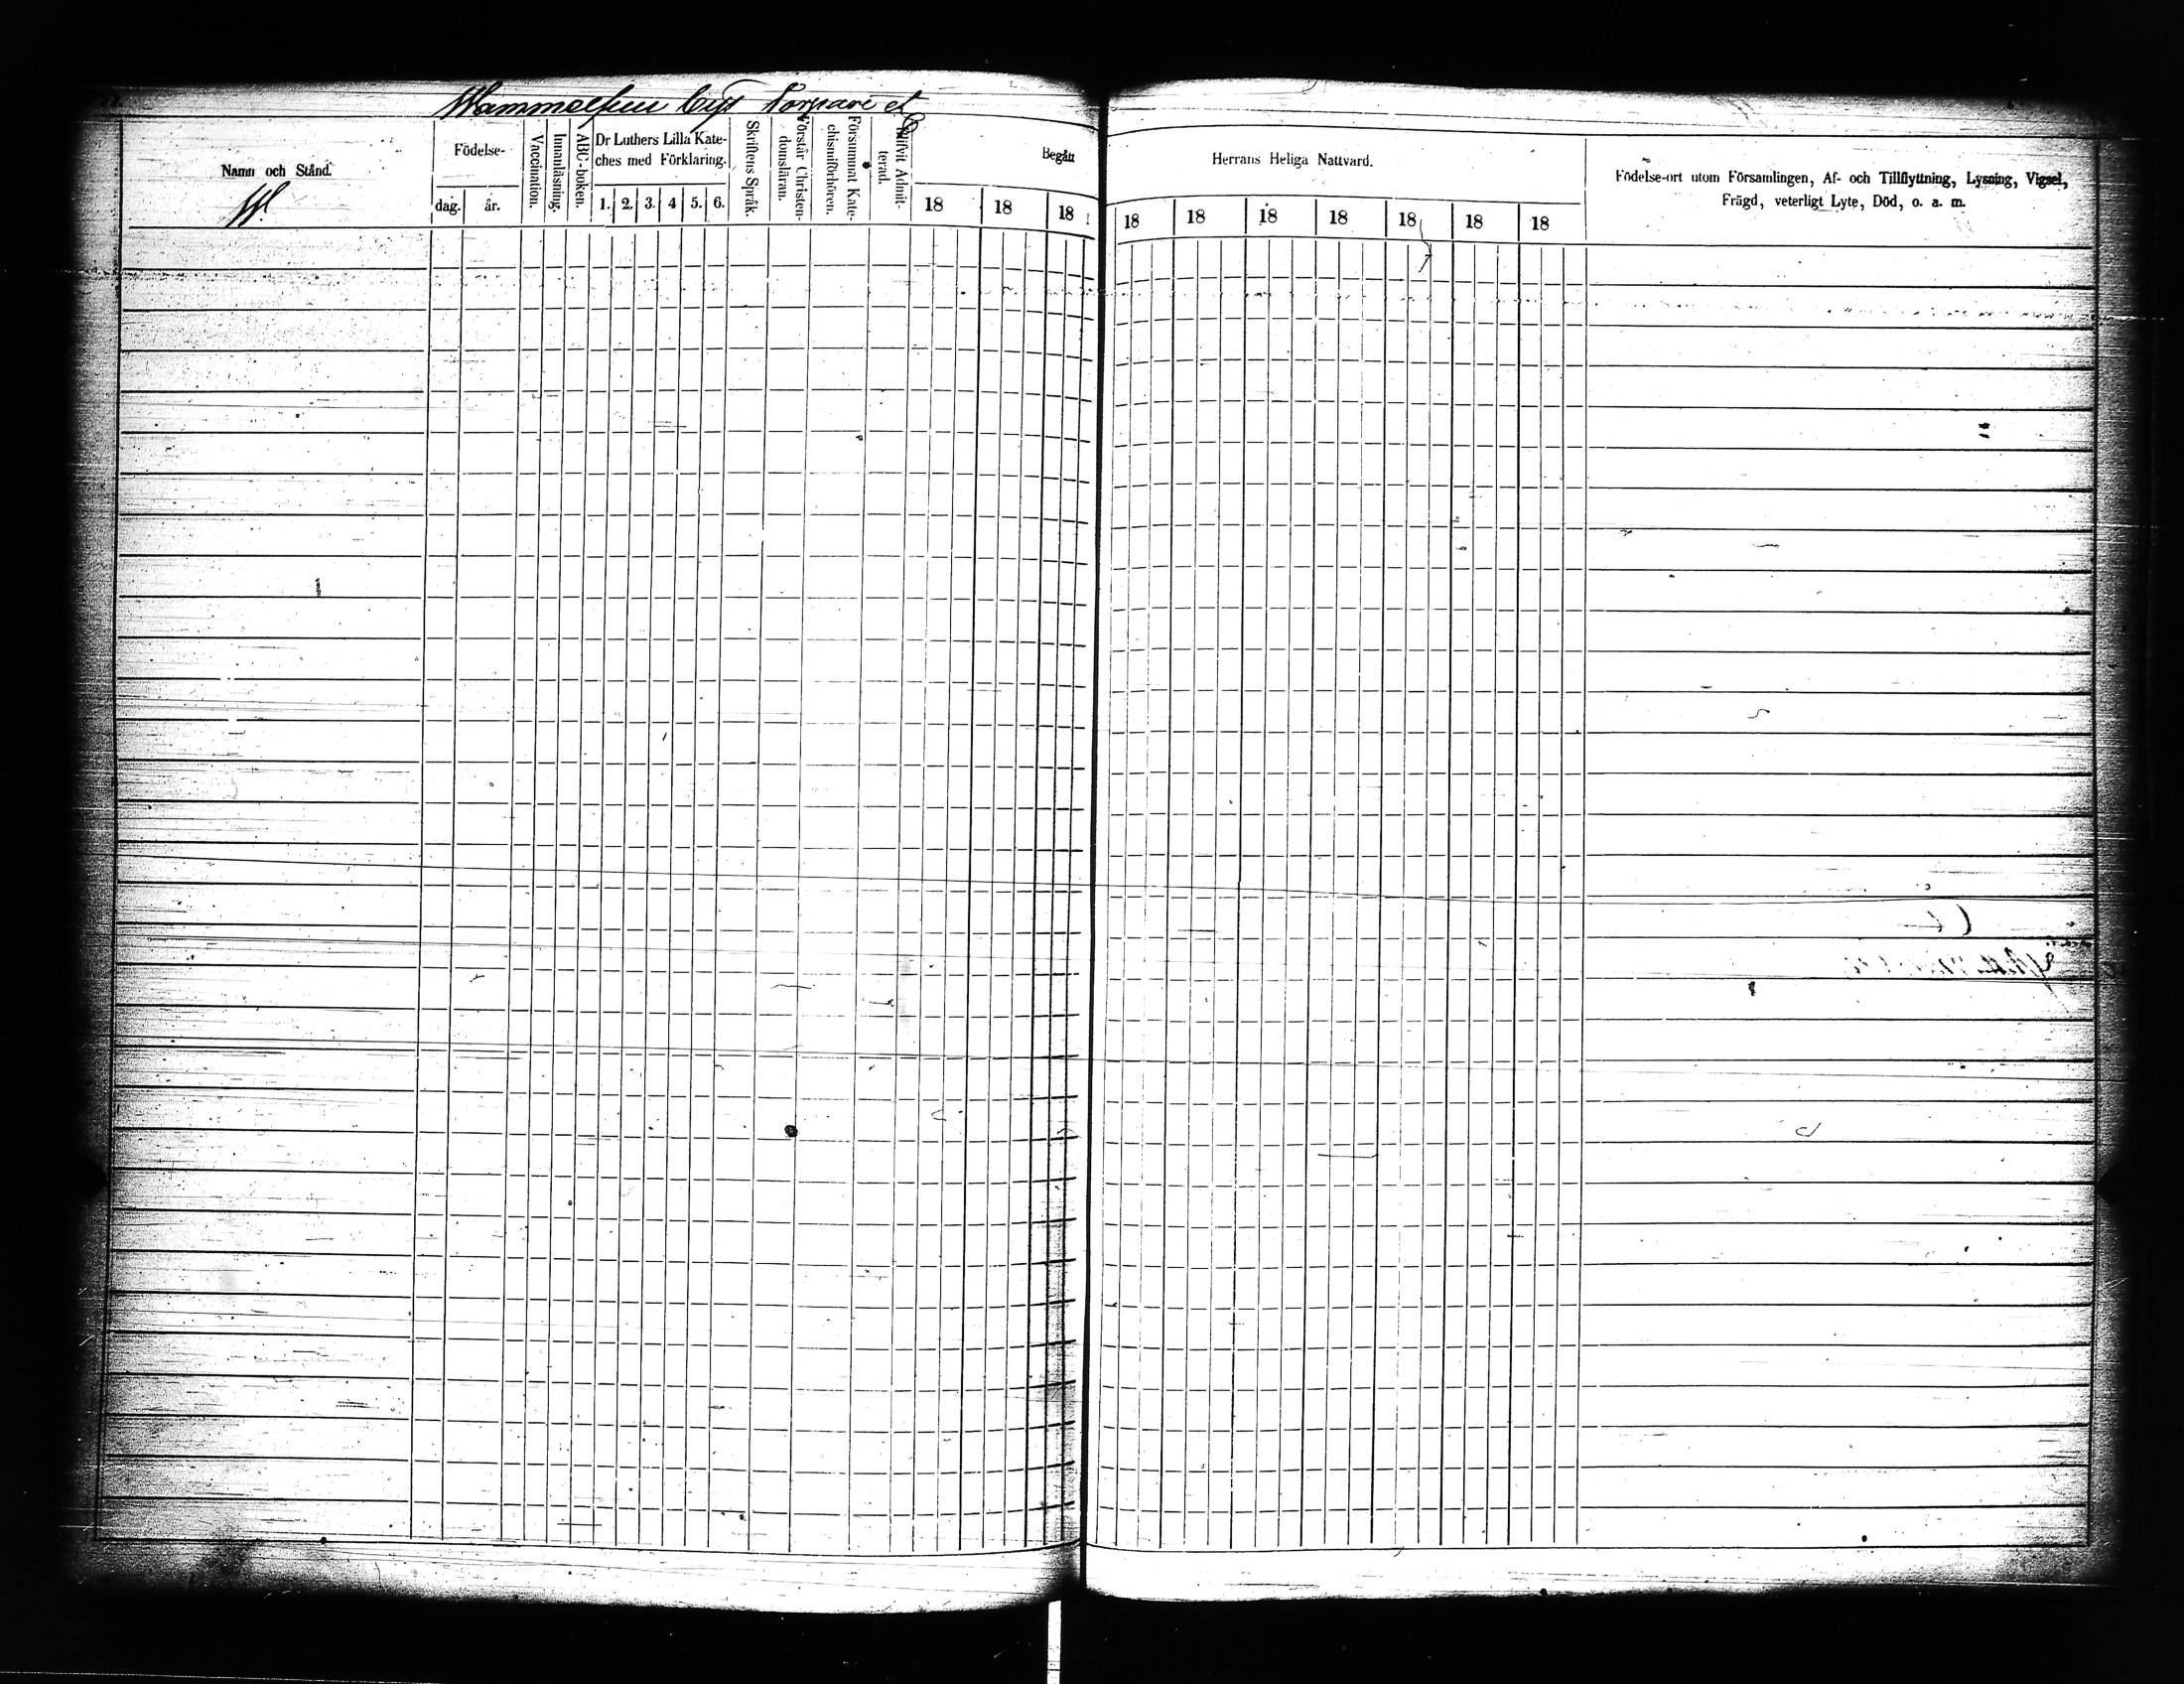 Torpare et
Namn och Stånd.
W.
Födelse-
dag.
år.
Vaccination.
Innanläsning.
ABC-boken.
Dr Luthers Lilla Kate-
ches med Förklaring.
1. 2. 3. 4 5. 6.
Skriftens Språk.
Förstår Christen-
domsläran.
Försummat Kate-
chismiförhören.
Blifvit Admit-
terad.
Begått
18 18 18
Herrans Heliga Nattvard.
18 18 18 18 18 18 18
Födelse-ort utom Församlingen, Af- och Tillflyttning, Lysning, Vigsel,
Frägd, veterligt Lyte, Död, o. a. m.